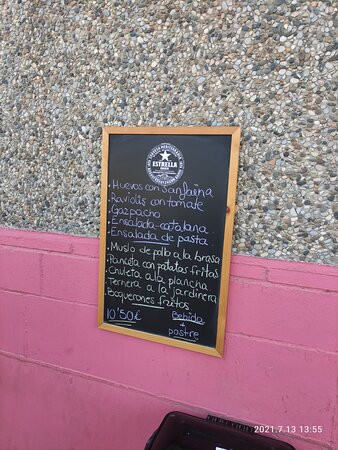 ESTRELLA
• Huevos con Sanfaina
• Raviolis con tomate
• Gazpacho
• Ensalada catalana
• Ensalada de pasta
• Muslo de pollo a la brasa
• Panceta con patatas fritas
• Chuleta a la plancha
• Ternera a la jardinera
• Boquerones fritos
10'50€ Bebida
+
postre
2021.7.13 13:55